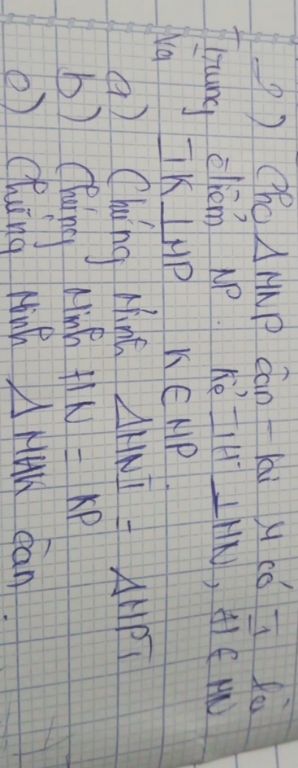 2) Cho ΔMNP cân tại M có I là
trung điểm NP. Kẻ IH ⊥ MN, H ∈ MN
Và IK ⊥ MP K ∈ MP.
a) Chứng Minh ΔMNI = ΔMPI
b) Chứng Minh HN = KP
c) Chứng Minh ΔMHK cân.